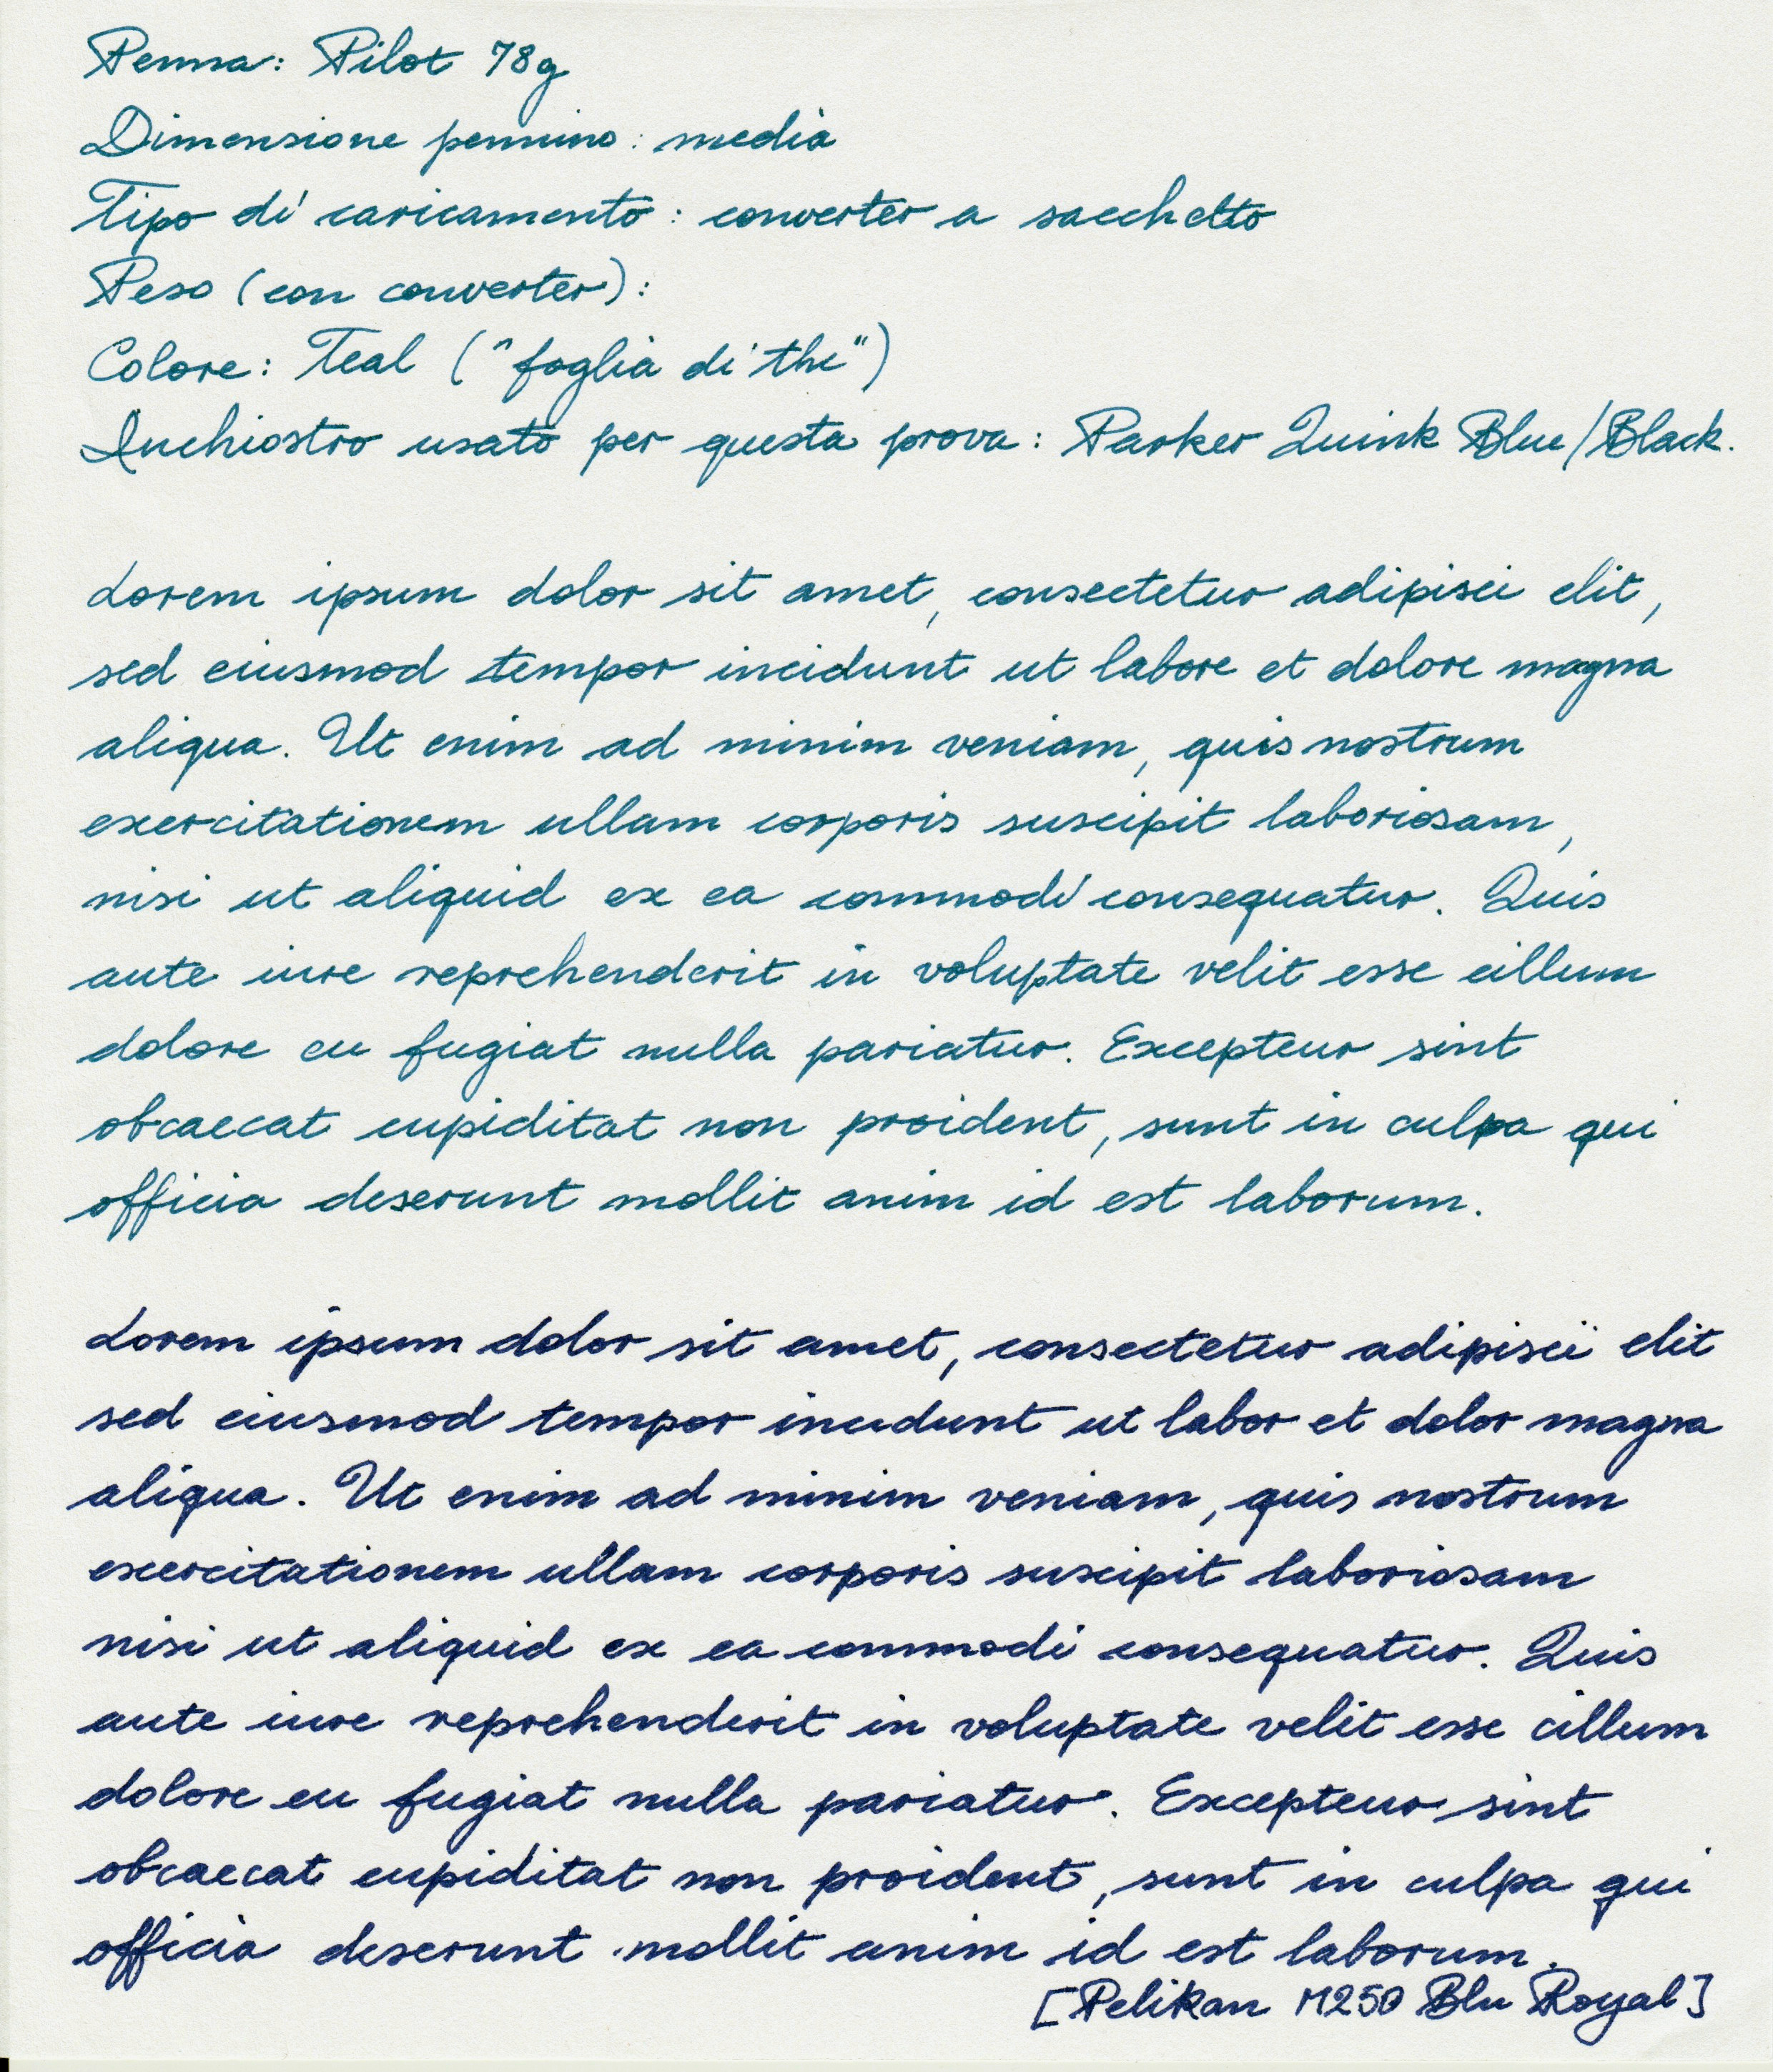 Penna: Pilot 78g
Dimensione pennino: media
Tipo di caricamento: converter a sacchetto
Peso (con converter):
Colore: Teal ("foglia di the")
Inchiostro usato per questa prova: Parker Quink Blue/Black.
Lorem ipsum dolor sit amet, consectetur adipisci elit,
sed eiusmod tempor incidunt ut labore et dolore magna
aliqua. Ut enim ad minim veniam, quis nostrum
exercitationem ullam corporis suscipit laboriosam,
nisi ut aliquid ex ea commodi consequatur. Quis
aute iure reprehenderit in voluptate velit esse cillum
dolore eu fugiat nulla pariatur. Excepteur sint
obcaecat cupiditat non proident, sunt in culpa qui
officia deserunt mollit anim id est laborum.
Lorem ipsum dolor sit amet, consectetur adipiscii elit
sed eiusmod tempor incidunt ut labor et dolor magna
aliqua. Ut enim ad minim veniam, quis nostrum
exercitationem ullam corporis suscipit laboriosam
nisi ut aliquid ex ea commodi consequatur. Quis
aute iure reprehenderit in voluptate velit esse cillum
dolore eu fugiat nulla pariatur. Excepteur sint
obcaecat cupiditat non proident, sunt in culpa qui
officia deserunt mollit anim id est laborum.
[Pelikan M250 Blu Royal]